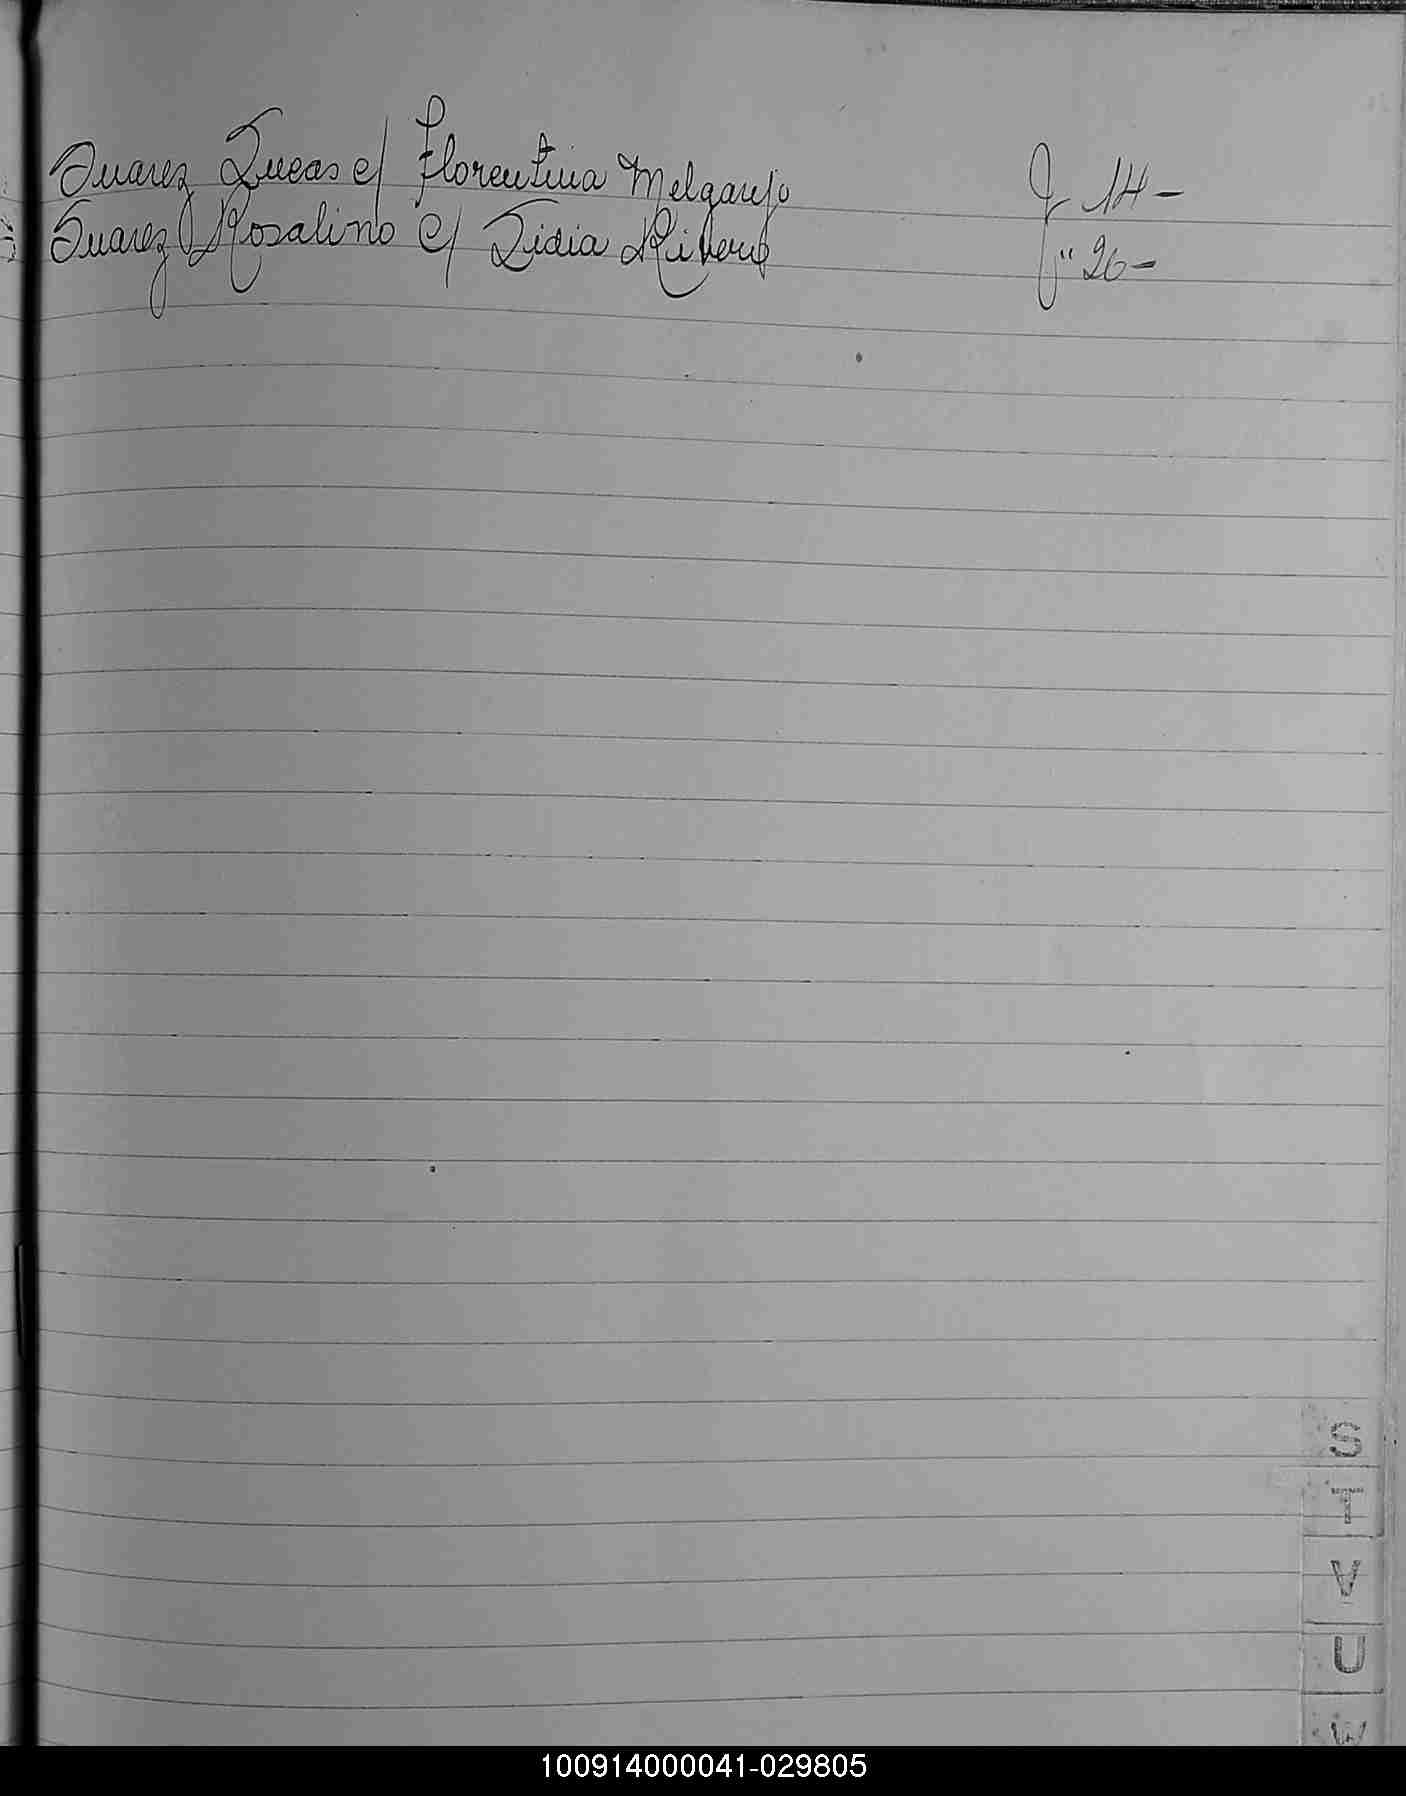 Suarez Lucas c/ Florentina Melgarejo F 14-
Suarez Rosalino c/ Lidia Rivero " 26-
S
T
V
U
W
100914000041-029805